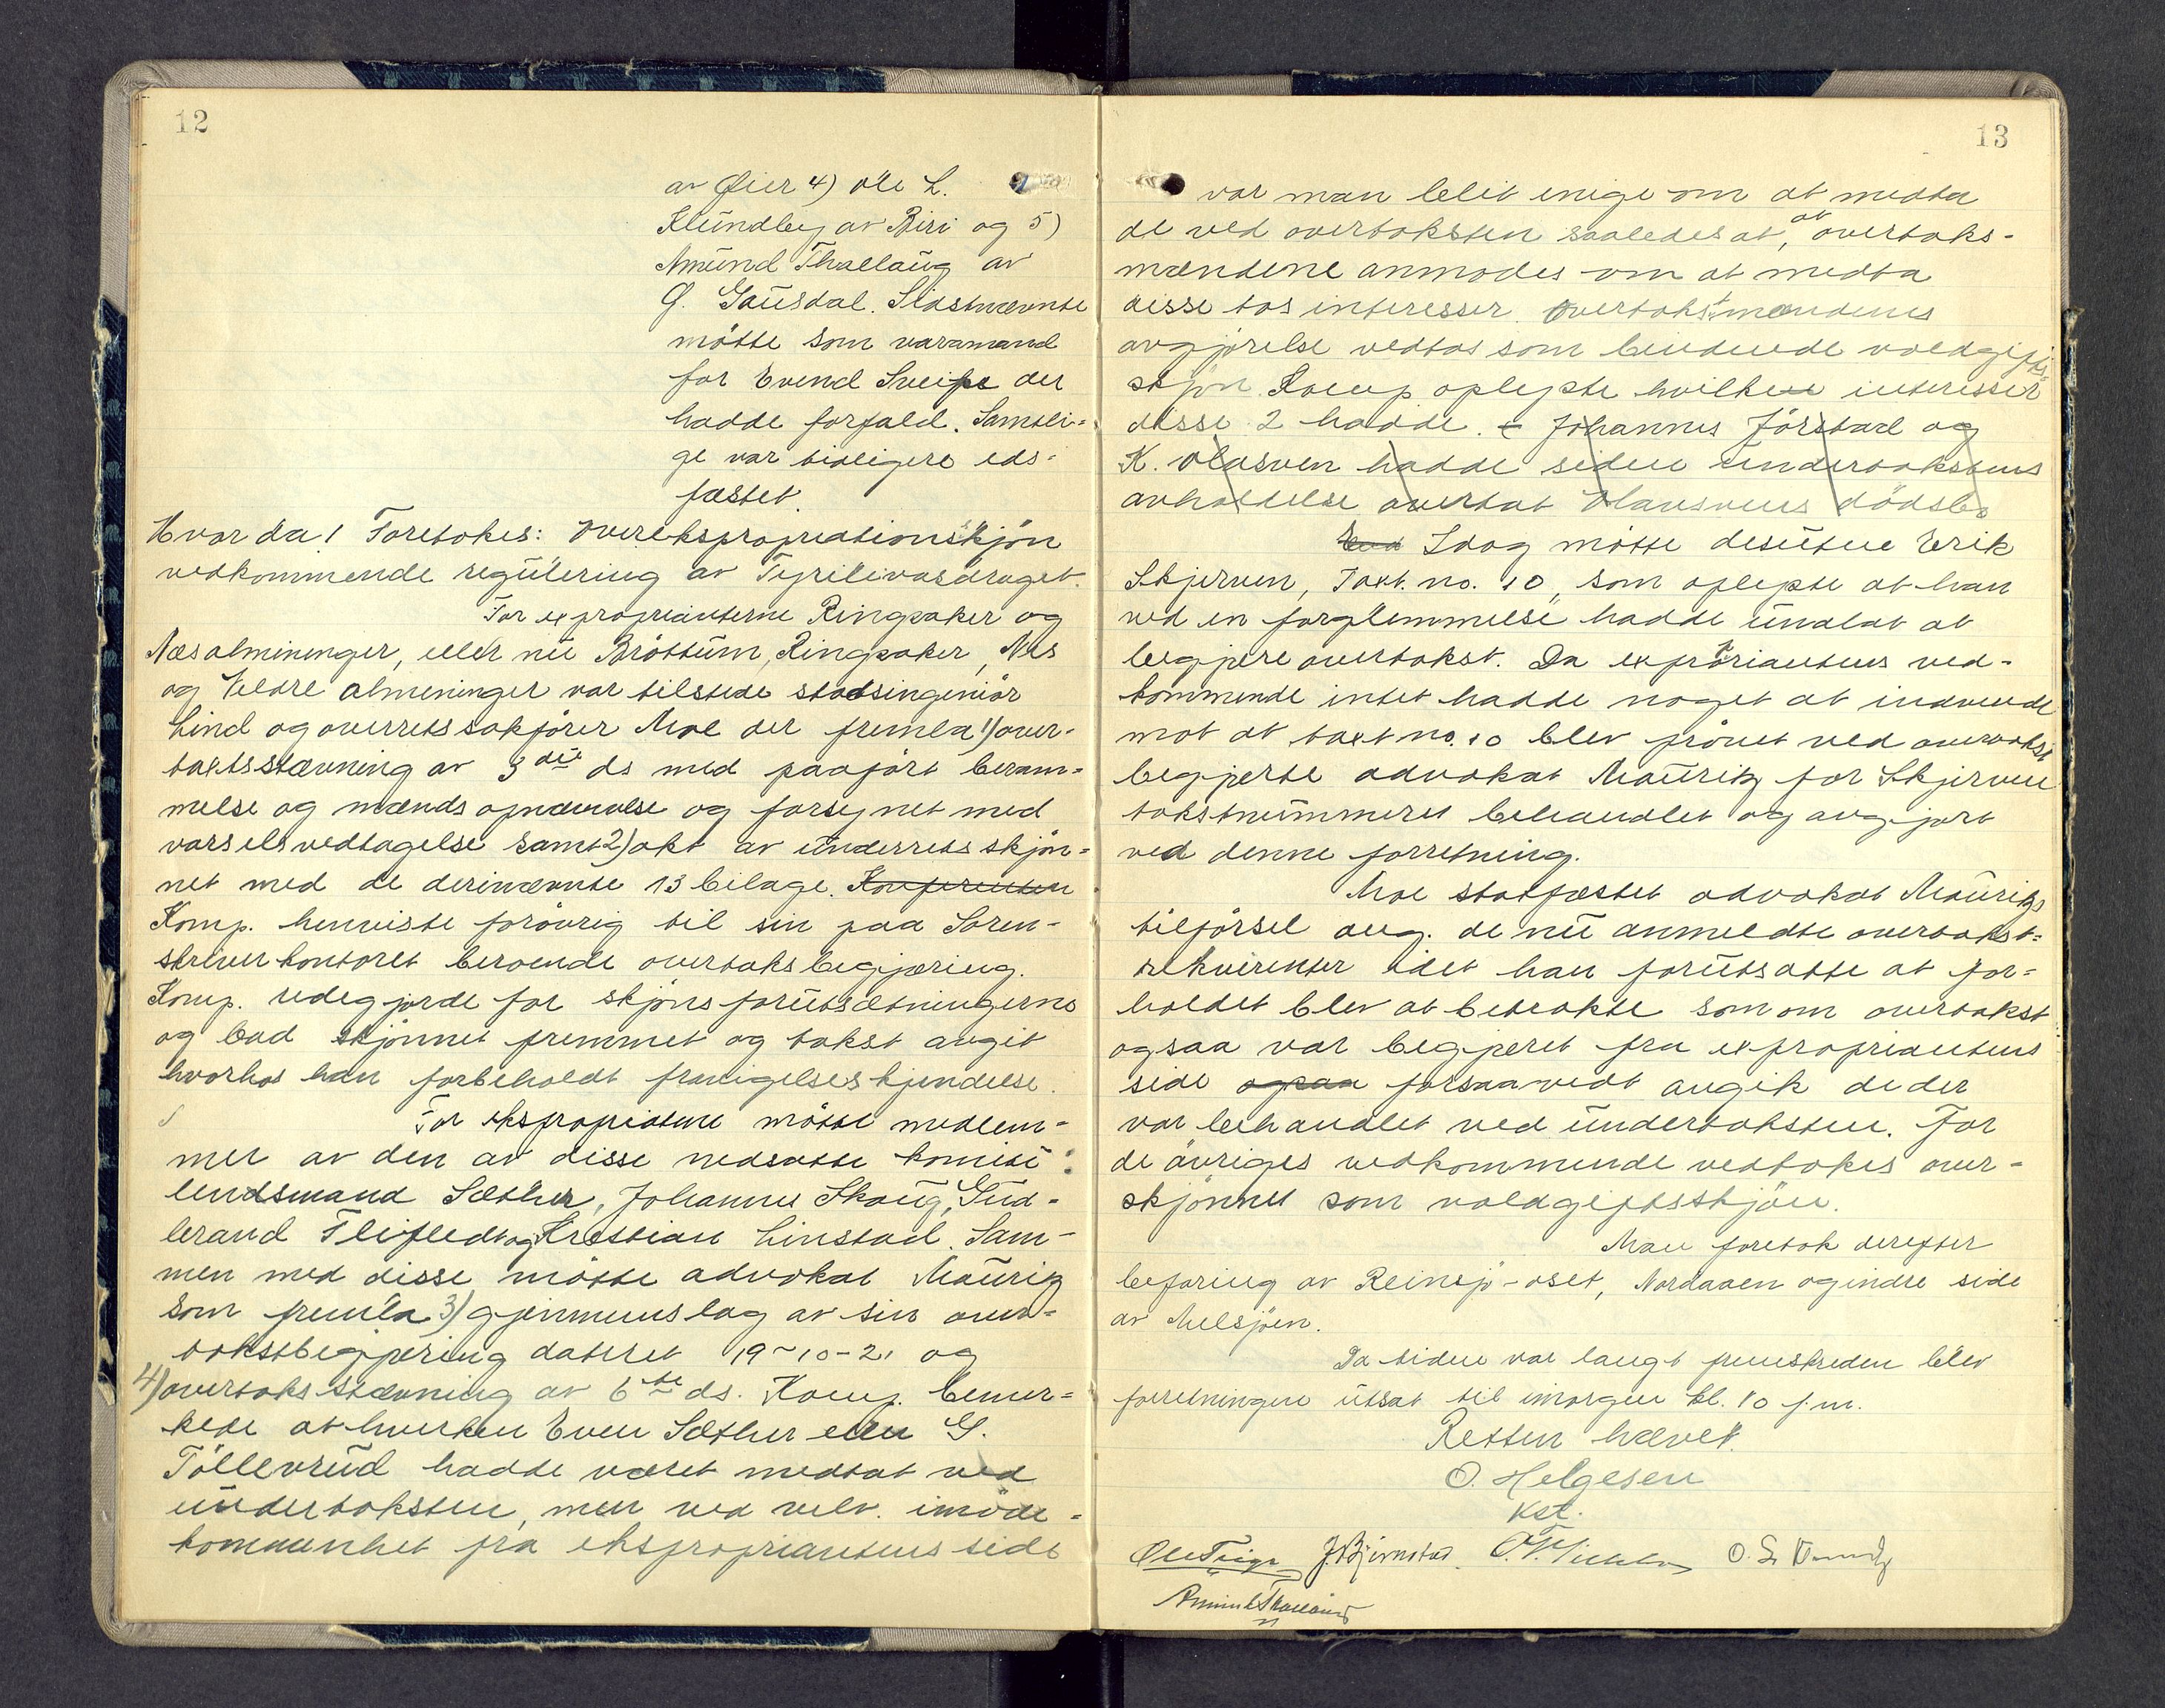 12
av Øier 4) Ole L.
Klundby av Biri og 5)
Amund Thallaug av
Ø. Gausdal. Sidstnævnte
møtte som varamand
for Evend Sveipe der
hadde forfald. Samtli-
ge var tidligere eds-
fæstet.
Hvorda! Foretokes: Overekspropriationsskjøn
vedkommende regulering av Tyrilivasdraget.
For expropriantene Ringsaker og
Næs almininger, eller nu Brøttum, Ringsaker, Nes
og Veldre almeninger var tilstede stadsingeniør
Lind og overretssakfører Moe der fremla 1) over-
taxtsstævning av 3die ds med paaført beram-
melse og mænds opnævnelse og forsynet med
varselsvedtagelse samt 2) akt av underretsskjøn-
net med de derinævnte 13 bilage. Konferenten
Komp. henviste forøvrig til sin paa Soren-
skriverkontoret beroende overtaksbegjæring.
Komp. redegjorde for skjønsforutsætningerne
og bad skjønnet fremmet og takst avgit
hvorhos han forbeholdt fravigelseskjendelse.
For ekspropriatene møtte medlem-
mer av den av disse nedsatte komité:
lendsmand Sæther, Johannes Skaug, Gud-
brand Flifledt og Kristian Linstad. Sam-
men med disse møtte advokat Mauritz
som fremla 3) gjenmemslag av sin over-
takstbegjæring dateret 19-10-21 og
4) overtaksstævning av 6te ds. Komp. bemer-
kede at hverken Even Sæther eller G.
Tøllevrud hadde været medtat ved
undertaksten, men ved velv. imøde-
kommenhet fra ekspropriantens side
13
var man blit enige om at medta
de ved overtaksten saaledes at, at overtaks-
mændene anmodes om at medta
disse tos interesser. Overtakstmændenes
avgjørelse vedtas som bindende voldgifts-
skjøn. Komp oplyste hvilken interesser
disse 2 hadde. Johannes Jørstad og
K. Olasven hadde siden undertakstens
avholdelse overtat Olasvens dødsbo
Idag møtte desuten Erik
Skjerven, Taxt. no. 10, som oplyste at han
ved en forglemmelse hadde undlat at
begjære overtakst. Da expropriantens ved-
kommende intet hadde noget at indvende
mot at taxt no. 10 blev prøvet ved overtakst
begjærte advokat Mauritz for Skjerven
takstnummeret behandlet og avgjort
ved denne forretning.
Moe statfæstet advokat Mauritz
tilførsel ang. de nu anmeldte overtakst-
rekvirenter idet han forutsatte at for-
holdet blev at betrakte som om overtakst
ogsaa var begjæret fra expropriantens
side ogsaa forsaavidt angik de der
var behandlet ved undertaksten. For
de øvriges vedkommende vedtokes over-
skjønnet som voldgiftsskjøn.
Man foretok derefter
befaring av Reinsjø-oset, Nordaaen og indre side
av Melsjøen.
Da tiden var langt fremskreden blev
forretningen utsat til imorgen kl. 10 f.m.
Retten hævet.
O. Helgesen
Kst.
Ole Teige J. Bjørnstad. O. L. Klundby
Amund Thallaug